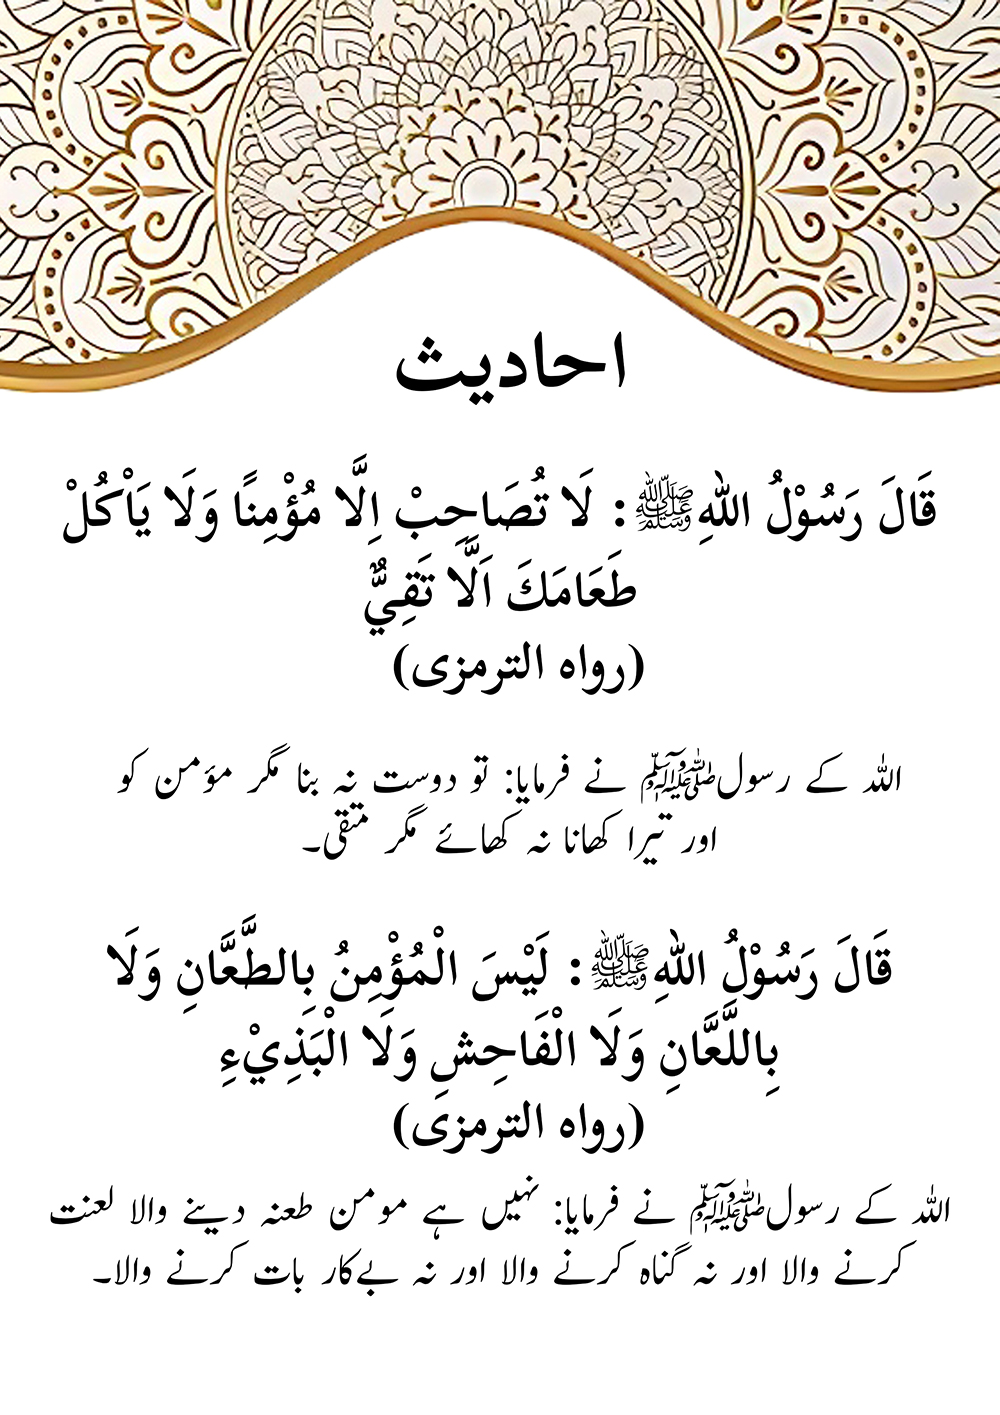 احادیث
قَالَ رَسُوْلُ اللهِﷺ: لَا تُصَاحِبْ اِلَّا مُؤْمِنًا وَلَا يَاْكُلْ
طَعَامَكَ اَلَّا تَقِيٌّ
(رواه الترمزی)
اللہ کے رسولﷺ نے فرمایا: تو دوست نہ بنا مگر مؤمن کو
اور تیرا کھانا نہ کھائے مگر متقی۔
قَالَ رَسُوْلُ اللهِﷺ: لَيْسَ الْمُؤْمِنُ بِالطَّعَّانِ وَلَا
بِاللَّعَّانِ وَلَا الْفَاحِشِ وَلَا الْبَذِيْءِ
(رواه الترمزی)
اللہ کے رسولﷺ نے فرمایا: نہیں ہے مومن طعنہ دینے والا لعنت
کرنے والا اور نہ گناہ کرنے والا اور نہ بےکار بات کرنے والا۔